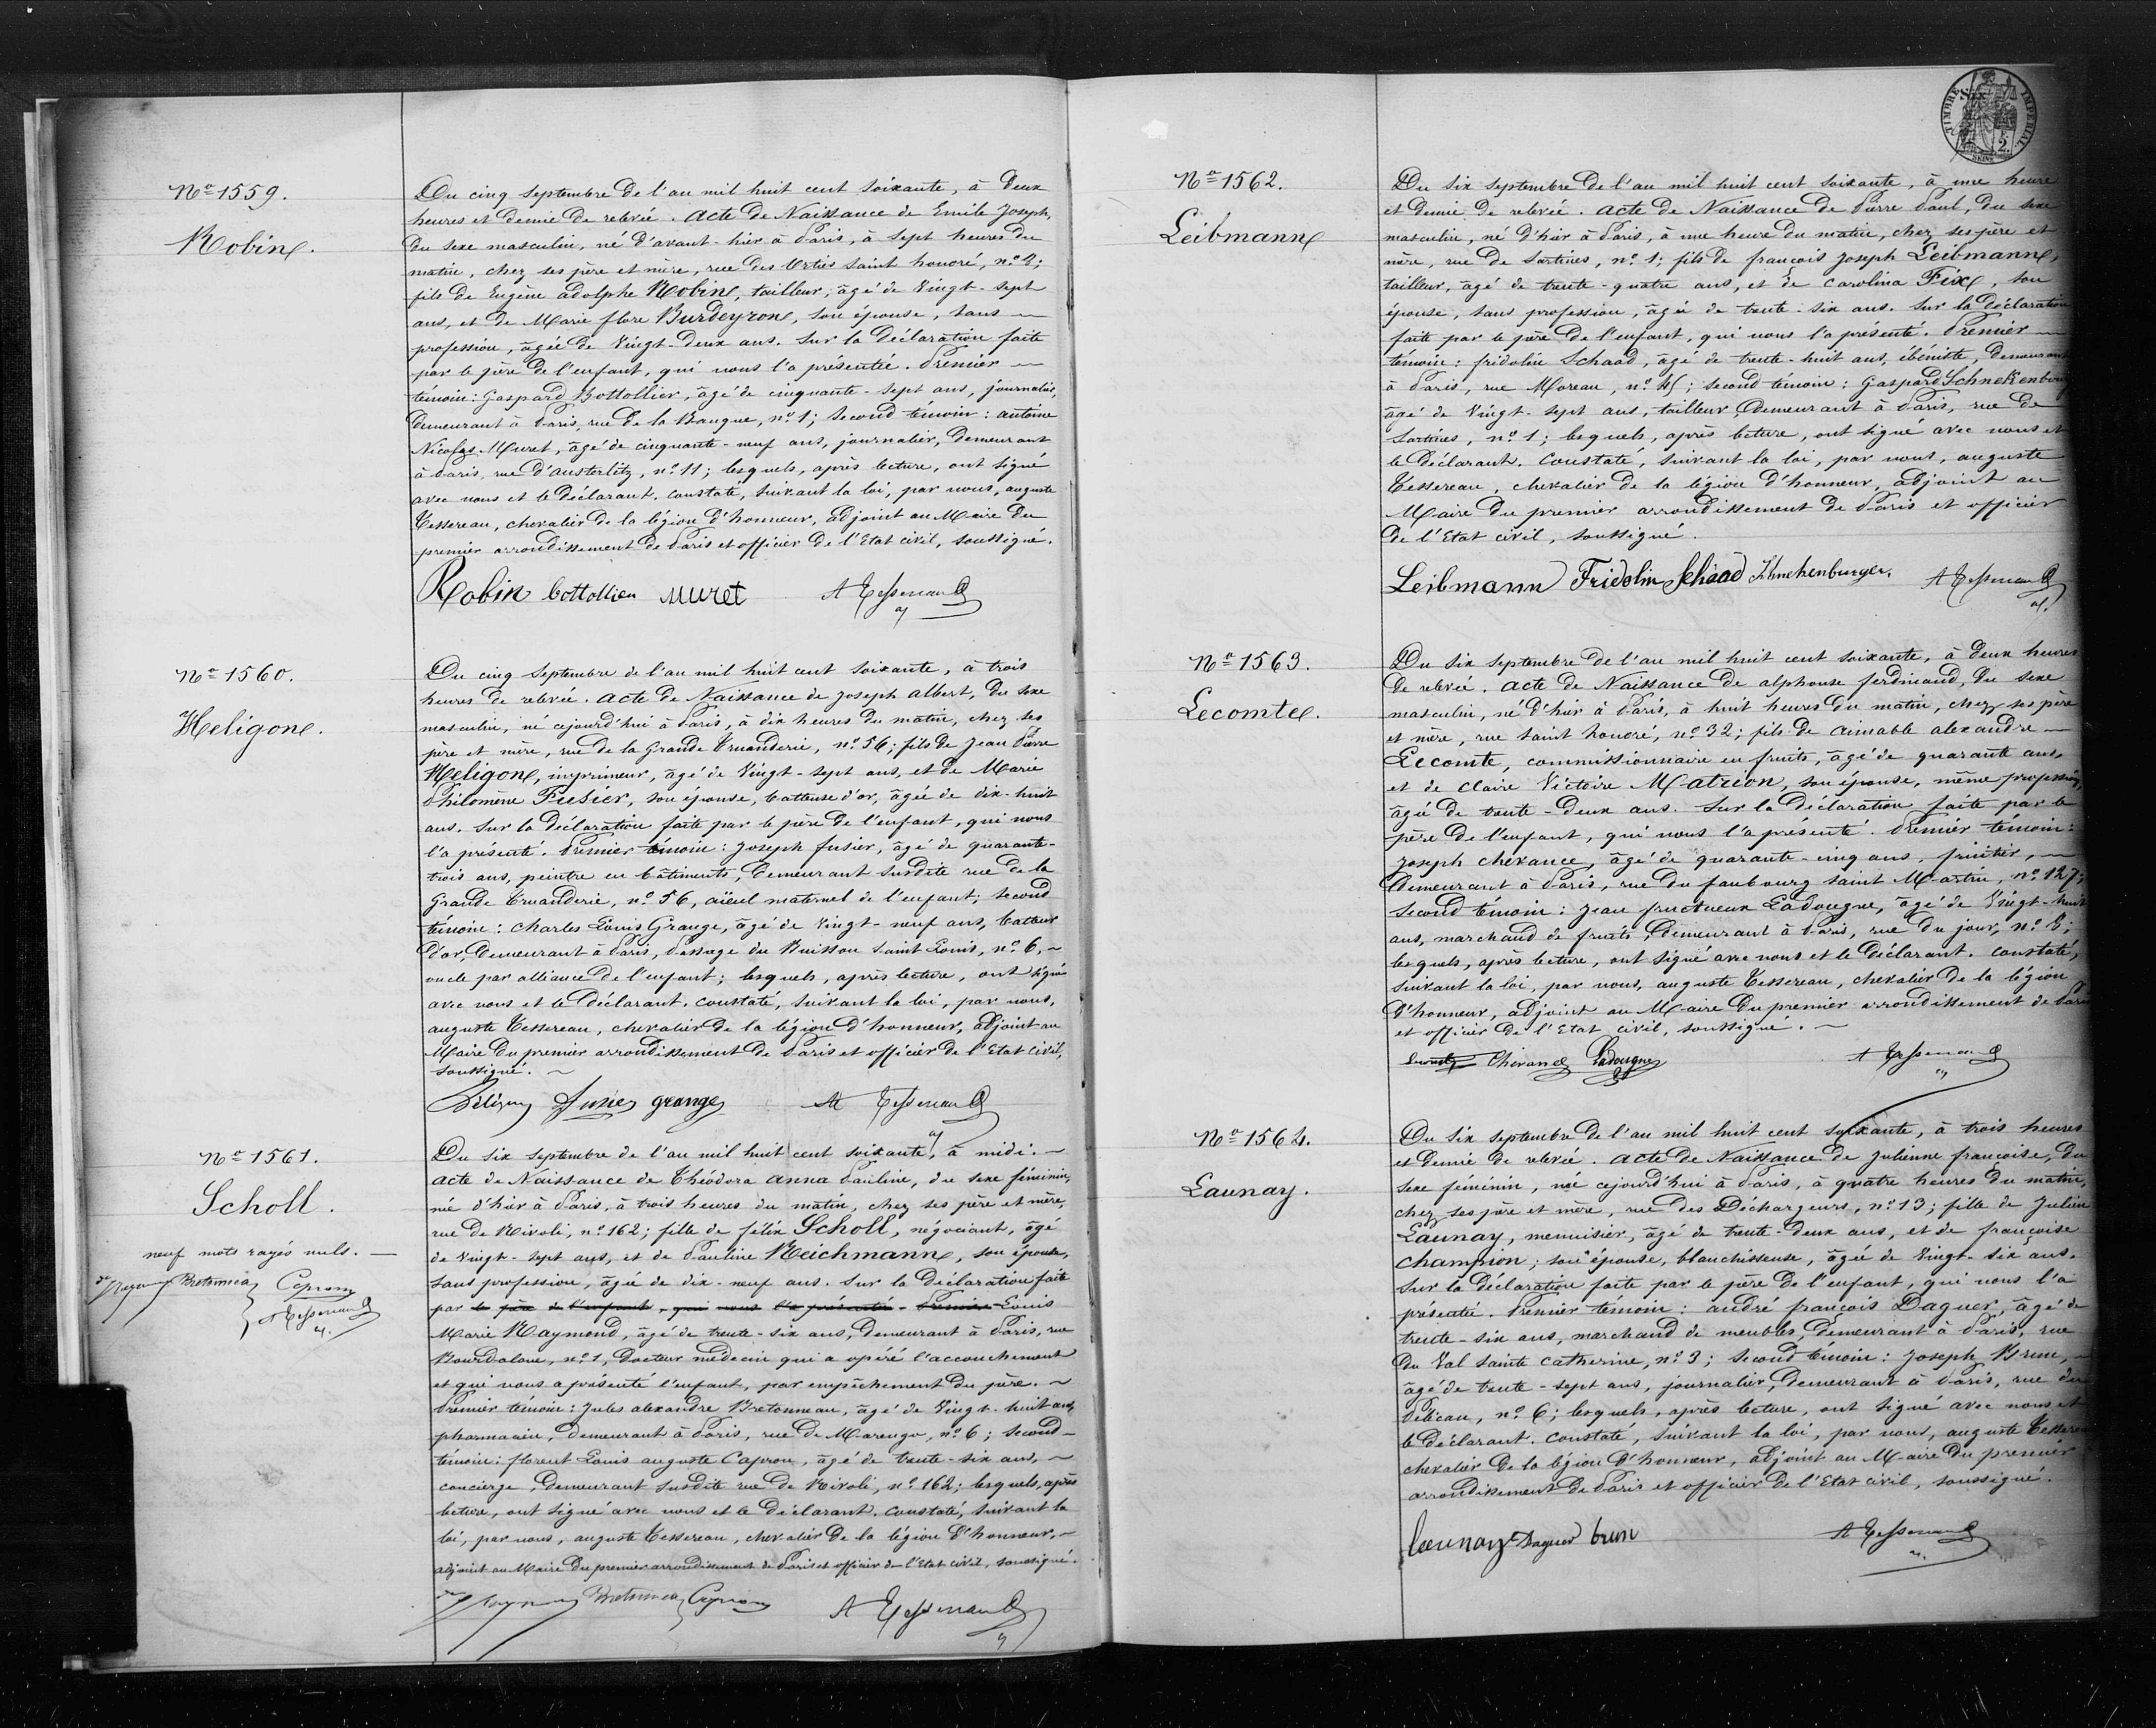 No 1559.
Robin.
Du cinq septembre de l'an mil huit cent soixante, à deux
heures et demie de relevée. Acte de Naissance de Emile Joseph,
du sexe masculin, né d'avant-hier à Paris, à sept heures du
matin, chez ses père et mère, rue des Orties saint honoré, no 8;
fils de Eugène adolphe Robin, tailleur, âgé de vingt-sept
ans, et de Marie flore Burdeyron, son épouse, sans
profession, âgée de vingt-deux ans. Sur la déclaration faite
par le père de l'enfant, qui nous l'a présenté. Premier
témoin: Gaspard Bottollier, âgé de cinquante-sept ans, journalier,
demeurant à Paris, rue de la Banque, no 1; second témoin: antoine
Nicolas Muret, âgé de cinquante-neuf ans, journalier, demeurant
à Paris, rue d'austerlitz, no 11; lesquels, après lecture, ont signé
avec nous et le déclarant. Constaté, suivant la loi, par nous, auguste
Tessereau, chevalier de la légion d'honneur, adjoint au Maire du
premier arrondissement de Paris et officier de l'Etat civil, soussigné.
Robin bottollier muret A Tessereau
No 1560.
Heligon.
Du cinq septembre de l'an mil huit cent soixante, à trois
heures de relevée. Acte de Naissance de Joseph albert, du sexe
masculin, né cejourd'hui à Paris, à dix heures du matin, chez ses
père et mère, rue de la Grande Truanderie, no 56; fils de Jean Pierre
Heligon, imprimeur, âgé de vingt-sept ans, et de Marie
Philomène Fusier, son épouse, batteuse d'or, âgée de dix-huit
ans. Sur la déclaration faite par le père de l'enfant, qui nous
l'a présenté. Premier témoin: Joseph fusier, âgé de quarante-
trois ans, peintre en bâtiments, demeurant susdite rue de la
Grande Truanderie, no 56, aïeul maternel de l'enfant; second
témoin: Charles Louis Grange, âgé de vingt-neuf ans, batteur
d'or, demeurant à Paris, Passage du Buisson Saint Louis, no 6,
oncle par alliance de l'enfant; lesquels, après lecture, ont signé
avec nous et le déclarant. Constaté, suivant la loi, par nous,
auguste Tessereau, chevalier de la légion d'honneur, adjoint au
Maire du premier arrondissement de Paris et officier de l'Etat civil,
soussigné.
héligon Fusier grange A Tessereau
No 1561.
Scholl.
neuf mots rayés nuls.
Raymond Bretonneau Capron
A Tessereau
Du six septembre de l'an mil huit cent soixante, à midi.
acte de Naissance de Théodora anna Pauline, du sexe féminin,
née d'hier à Paris, à trois heures du matin, chez ses père et mère,
rue de Rivoli, no 162; fille de félix Scholl, négociant, âgé
de vingt-sept ans, et de Pauline Reichmann, son épouse,
sans profession, âgée de dix-neuf ans. Sur la déclaration faite
par le père de l'enfant, qui nous l'a présenté. Premier Louis
Marie Raymond, âgé de trente-six ans, demeurant à Paris, rue
Bourdaloue, no 1, Docteur médecin qui a opéré l'accouchement
et qui nous a présenté l'enfant, par empêchement du père.
Premier témoin: Jules alexandre Bretonneau, âgé de vingt-huit ans,
pharmacien, demeurant à Paris, rue de Marengo, no 6; second
témoin: florent Louis auguste Capron, âgé de trente-six ans,
concierge, demeurant susdite rue de Rivoli, no 162; lesquels, après
lecture, ont signé avec nous et le déclarant. Constaté, suivant la
loi, par nous, auguste Tessereau, chevalier de la légion d'honneur,
adjoint au Maire du premier arrondissement de Paris et officier de l'Etat civil, soussigné.
Raymond Bretonneau Capron A Tessereau
TIMBRE IMPERIAL
2.
No 1562.
Leibmann
Du six septembre de l'an mil huit cent soixante, à une heure
et demie de relevée. Acte de Naissance de Pierre Paul, du sexe
masculin, né d'hier à Paris, à une heure du matin, chez ses père et
mère, rue de Sartines, no 1; fils de françois Joseph Leibmann,
tailleur, âgé de trente-quatre ans, et de Carolina Fix, son
épouse, sans profession, âgée de trente-six ans. Sur la déclaration
faite par le père de l'enfant, qui nous l'a présenté. Premier
témoin: fridolin Schaad, âgé de trente-huit ans, ébéniste, demeurant
à Paris, rue Moreau, no; second témoin: Gaspard Schnekenburger
âgé de vingt-sept ans, tailleur, demeurant à Paris, rue de
Sartines, no 1; lesquels, après lecture, ont signé avec nous et
le déclarant. Constaté, suivant la loi, par nous, auguste
Tessereau, chevalier de la légion d'honneur, adjoint au
Maire du premier arrondissement de Paris et officier
de l'Etat civil, soussigné.
Leibmann Fridolin Schaad Schnekenburger A Tessereau
No 1563.
Lecomte.
Du six septembre de l'an mil huit cent soixante, à deux heures
de relevée. Acte de Naissance de alphonse ferdinand, du sexe
masculin, né d'hier à Paris, à huit heures du matin, chez ses père
et mère, rue saint honoré, no 32; fils de aimable alexandre
Lecomte, commissionnaire en fruits, âgé de quarante ans,
et de Claire Victoire Matrion, son épouse, même profession,
âgée de trente-deux ans. Sur la déclaration faite par le
père de l'enfant, qui nous l'a présenté. Premier témoin:
Joseph chevance, âgé de quarante-cinq ans, fruitier,
demeurant à Paris, rue du faubourg saint Martin, no 127;
second témoin: Jean fructueux Ladougne, âgé de vingt-huit
ans, marchand de fruits, demeurant à Paris, rue du jour, no 8;
lesquels, après lecture, ont signé avec nous et le déclarant. Constaté,
suivant la loi, par nous, auguste Tessereau, chevalier de la légion
d'honneur, adjoint au Maire du premier arrondissement de Paris
et officier de l'Etat civil, soussigné.
Chevance Ladougne A Tessereau
No 1564.
Launay.
Du six septembre de l'an mil huit cent soixante, à trois heures
et demie de relevée. Acte de Naissance de Julienne françoise, du
sexe féminin, née cejourd'hui à Paris, à quatre heures du matin,
chez ses père et mère, rue des Déchargeurs, no 13; fille de Julien
Launay, menuisier, âgé de trente-deux ans, et de françoise
Champion, son épouse, blanchisseuse, âgée de vingt-six ans.
Sur la déclaration faite par le père de l'enfant, qui nous l'a
présenté. Premier témoin: andré françois Daguer, âgé de
trente-six ans, marchand de meubles, demeurant à Paris, rue
du Val Sainte Catherine, no 3; second témoin: Joseph Brun,
âgé de trente-sept ans, journalier, demeurant à Paris, rue du
Pélican, no 6; lesquels, après lecture, ont signé avec nous et
le déclarant. Constaté, suivant la loi, par nous, auguste Tessereau
chevalier de la légion d'honneur, adjoint au Maire du premier
arrondissement de Paris et officier de l'Etat civil, soussigné.
launay Daguer brun A Tessereau